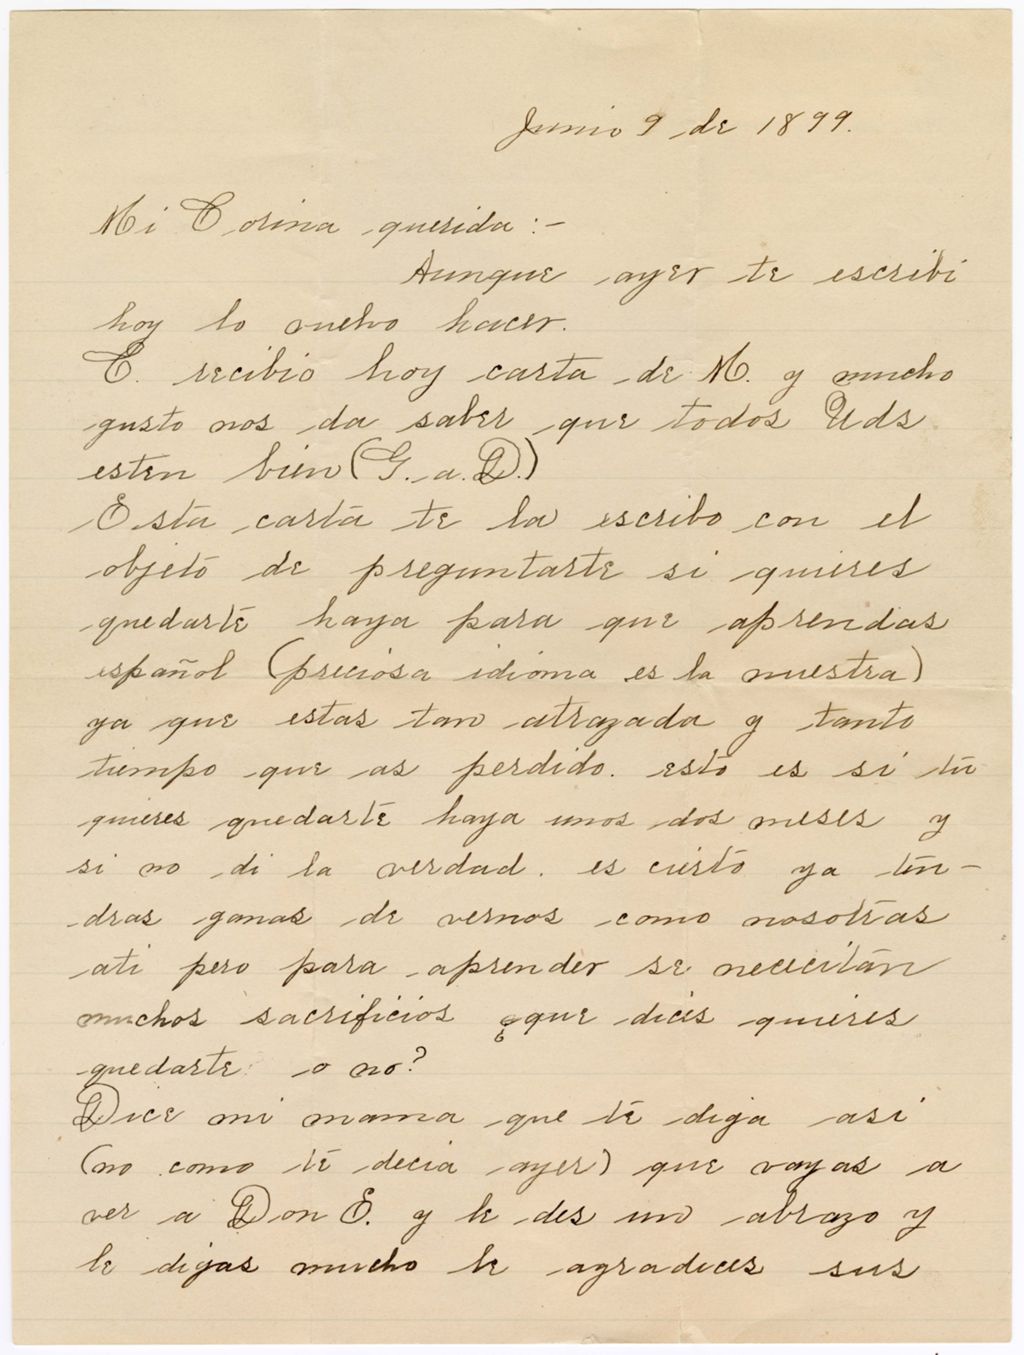 Junio 9 de 1899.
Mi Corina querida:-
Aunque ayer te escribi
hoy lo vuelvo hacer.
C. recibio hoy carta de M. y mucho
gusto nos da saber que todos Uds.
esten bien (G. a. D.)
Esta carta te la escribo con el
objeto de preguntarte si quieres
quedarte haya para que aprendas
español (preciosa idioma es la nuestra)
ya que estas tan atrazada y tanto
tiempo que as perdido. esto es si tu
quieres quedarte haya unos dos meses y
si no di la verdad. es cierto ya ten-
dras ganas de vernos como nosotras
ati pero para aprender se nececitan
muchos sacrificios ¿que dices quieres
quedarte o no?
Dice mi mama que te diga asi
(no como te decia ayer) que vayas a
ver a Don E. y le des un abrazo y
le digas mucho le agradeces sus